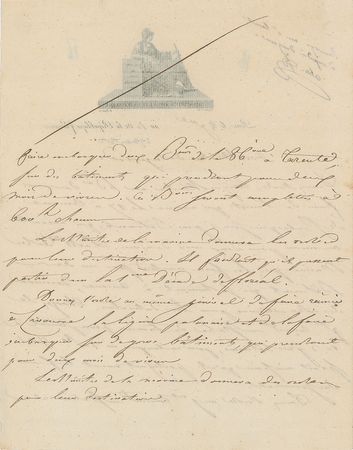 faire embarquer deux B.ons de la 86.eme à Tarente
sur des bâtiments qui prendront pour deux
mois de vivres. Ces B.ons seront complettés à
600 h. chacun
Le Ministre de la marine donnera les ordres
pour leur destination. Il faudrait qu'ils puissent
partir dans la 1.ere Décade de floréal.
Donnez l'ordre au même général de faire réunir
à la légion polonaise et de la faire
embarquer sur de gros bâtiments, qui prendront
pour deux mois de vivres
Le Ministre de la marine donnera des ordres
pour leur destination